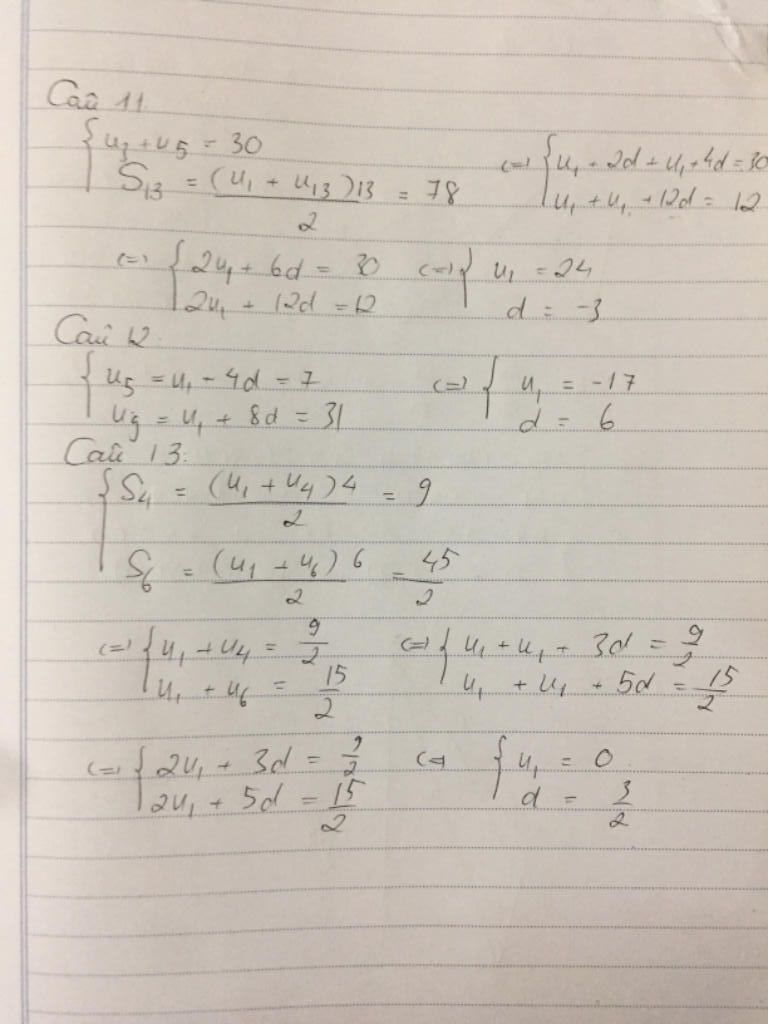 Câu 11
{ u₃ + u₅ = 30
S₁₃ = (u₁ + u₁₃)13 / 2 = 78
(=) { u₁ + 2d + u₁ + 4d = 30
u₁ + u₁ + 12d = 12
(=) { 2u₁ + 6d = 30
2u₁ + 12d = 12
(=) { u₁ = 24
d = -3
Câu 12
{ u₅ = u₁ - 4d = 7
u₉ = u₁ + 8d = 31
(=) { u₁ = -17
d = 6
Câu 13:
{ S₄ = (u₁ + u₄)4 / 2 = 9
S₆ = (u₁ + u₆)6 / 2 = 45/2
(=) { u₁ + u₄ = 9/2
u₁ + u₆ = 15/2
(=) { u₁ + u₁ + 3d = 9/2
u₁ + u₁ + 5d = 15/2
(=) { 2u₁ + 3d = 9/2
2u₁ + 5d = 15/2
(=) { u₁ = 0
d = 3/2